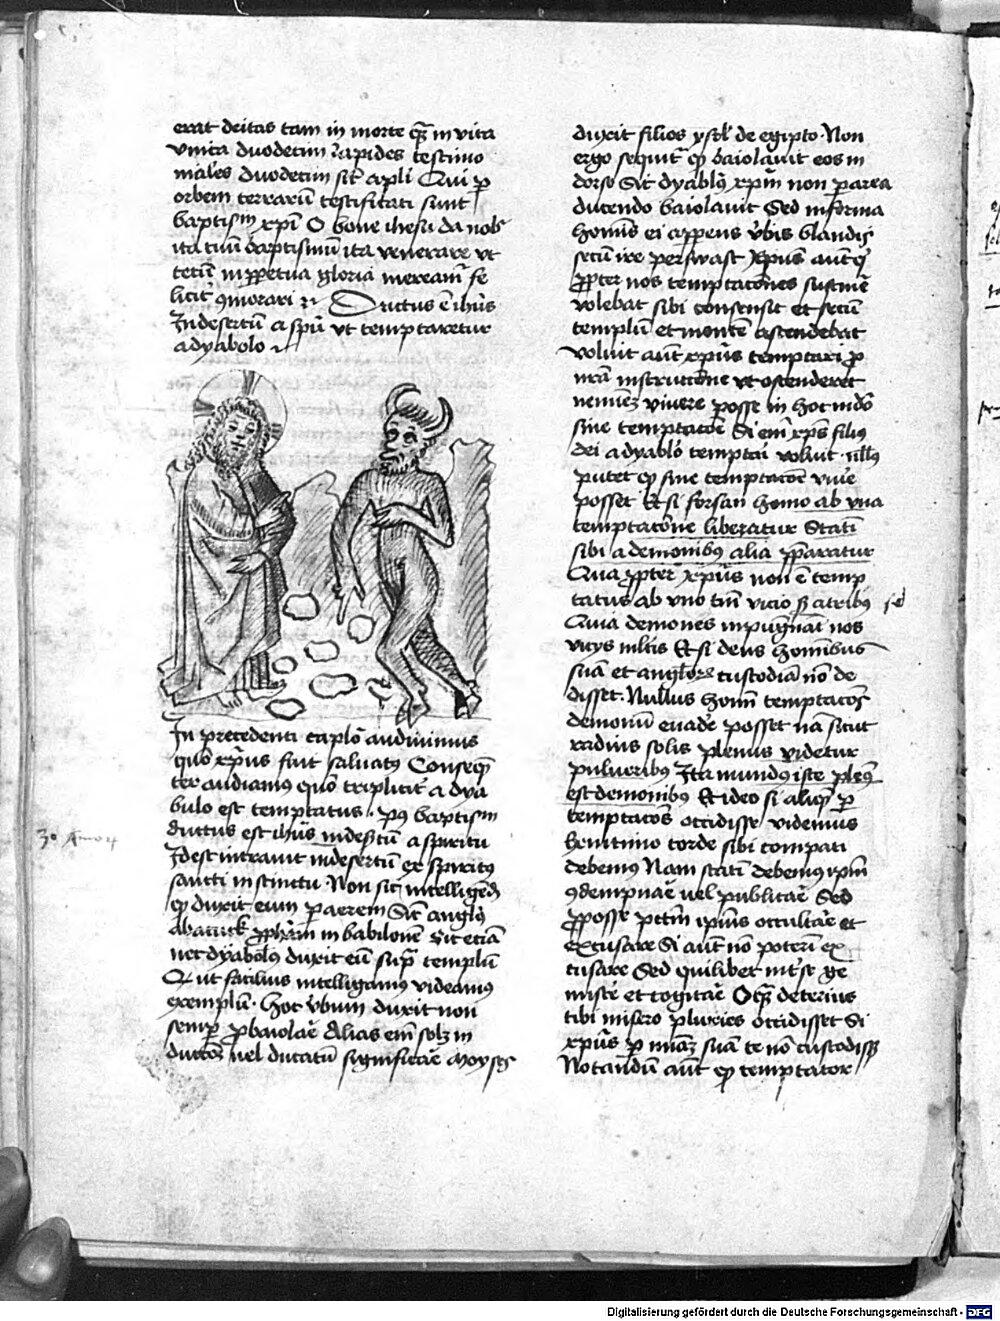 erat deitas tam in morte qȝ in vita
vnita duodecim lapides testimo
niales duodecim sūt apli Qui p
orbem terrarū testificati sunt
baptism xpi O bone ihesu da nob
ita tuū baptismū ita venerare vt
tecū in ppetua gloria mereamr fe
licit 9morari Ductus ē ihūs
In desertū a spū vt temptaretur
a dyabolo
In precedenti caplō audiuimus
quō xpūs fuit saluatꝰ Conseqn̄
ter audiamus quō triplicit a dya
bulo est temptatus pꝰ baptism
ductus est ihūs in desertū a spiritu
Id est intrauit in desertū ex spiritꝰ
sancti instinctu Non sic intelligend
qp duxit eum p aerem Sic anglꝰ
Abacuck pphām in babilonē Sic etiā
nec dyabolꝰ duxit eū supra templū
Et ut facilius intelligamus videamꝰ
exemplū hoc vbum duxit non
semp p baiolare Alias em solȝ in
ductōȝ uel ducatū significare Moyses
3o
duxit filios ysrl de egipto Non
ergo sequit qp baiolauit eos in
dorso Sic dyablꝰ xpm non p aera
ducendo baiolauit Sed in forma
hominis ei apparens vbis blandis
secū ire perswasit xpus autē
ppter nos temptacōnes sustinē
volebat sibi consensit et secū
templū et montē ascendebat
voluit aūt xpūs temptari p
nrā instructione vt ostenderet
neminē viuere posse in hoc mdō
sine temptacōe Si em xps filiꝰ
dei a dyablo temptari voluit nllꝰ
putet qp sine temptacōe viuē
posset Et si forsan homo ab vna
temptacōne liberatur Statī
sibi a demonibꝰ alia pparatur
Qua ppter xpūs non ē temp
tatus ab vno tm̄ vicio sȝ a tribꝰ
Quia demones inpugnāt nos
vicys mltis Et si deus hominibus
suā et anglorȝ custodiā nō de
disset Nullus homī temptacōes
demonū euadē posset nā sicut
radius solis plenus videtur
pulueribꝰ Ita mundꝰ iste plenꝰ
est demonibꝰ Et ideo si aliqp p
temptacōs occidisse videmus
hinc intimo corde sibi compati
debemꝰ Nam statī debemꝰ ipm
9dempnare uel publicare Sed
pposse pctm ipius occultare et
excusare Si aūt nō poterī ex
cusare Sed quilibet int se ge
miscē et cogitare O qȝ deterius
tibi misero pluries occidisset Si
xpūs p miaȝ suā te nō custodissȝ
Notandū aūt qp temptator
Digitalisierung gefördert durch die Deutsche Forschungsgemeinschaft - DFG